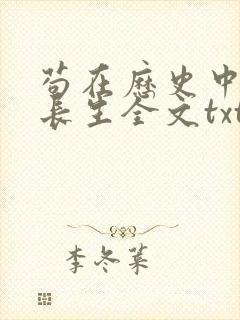 苟在历史中
长生全文txt
李冬菜